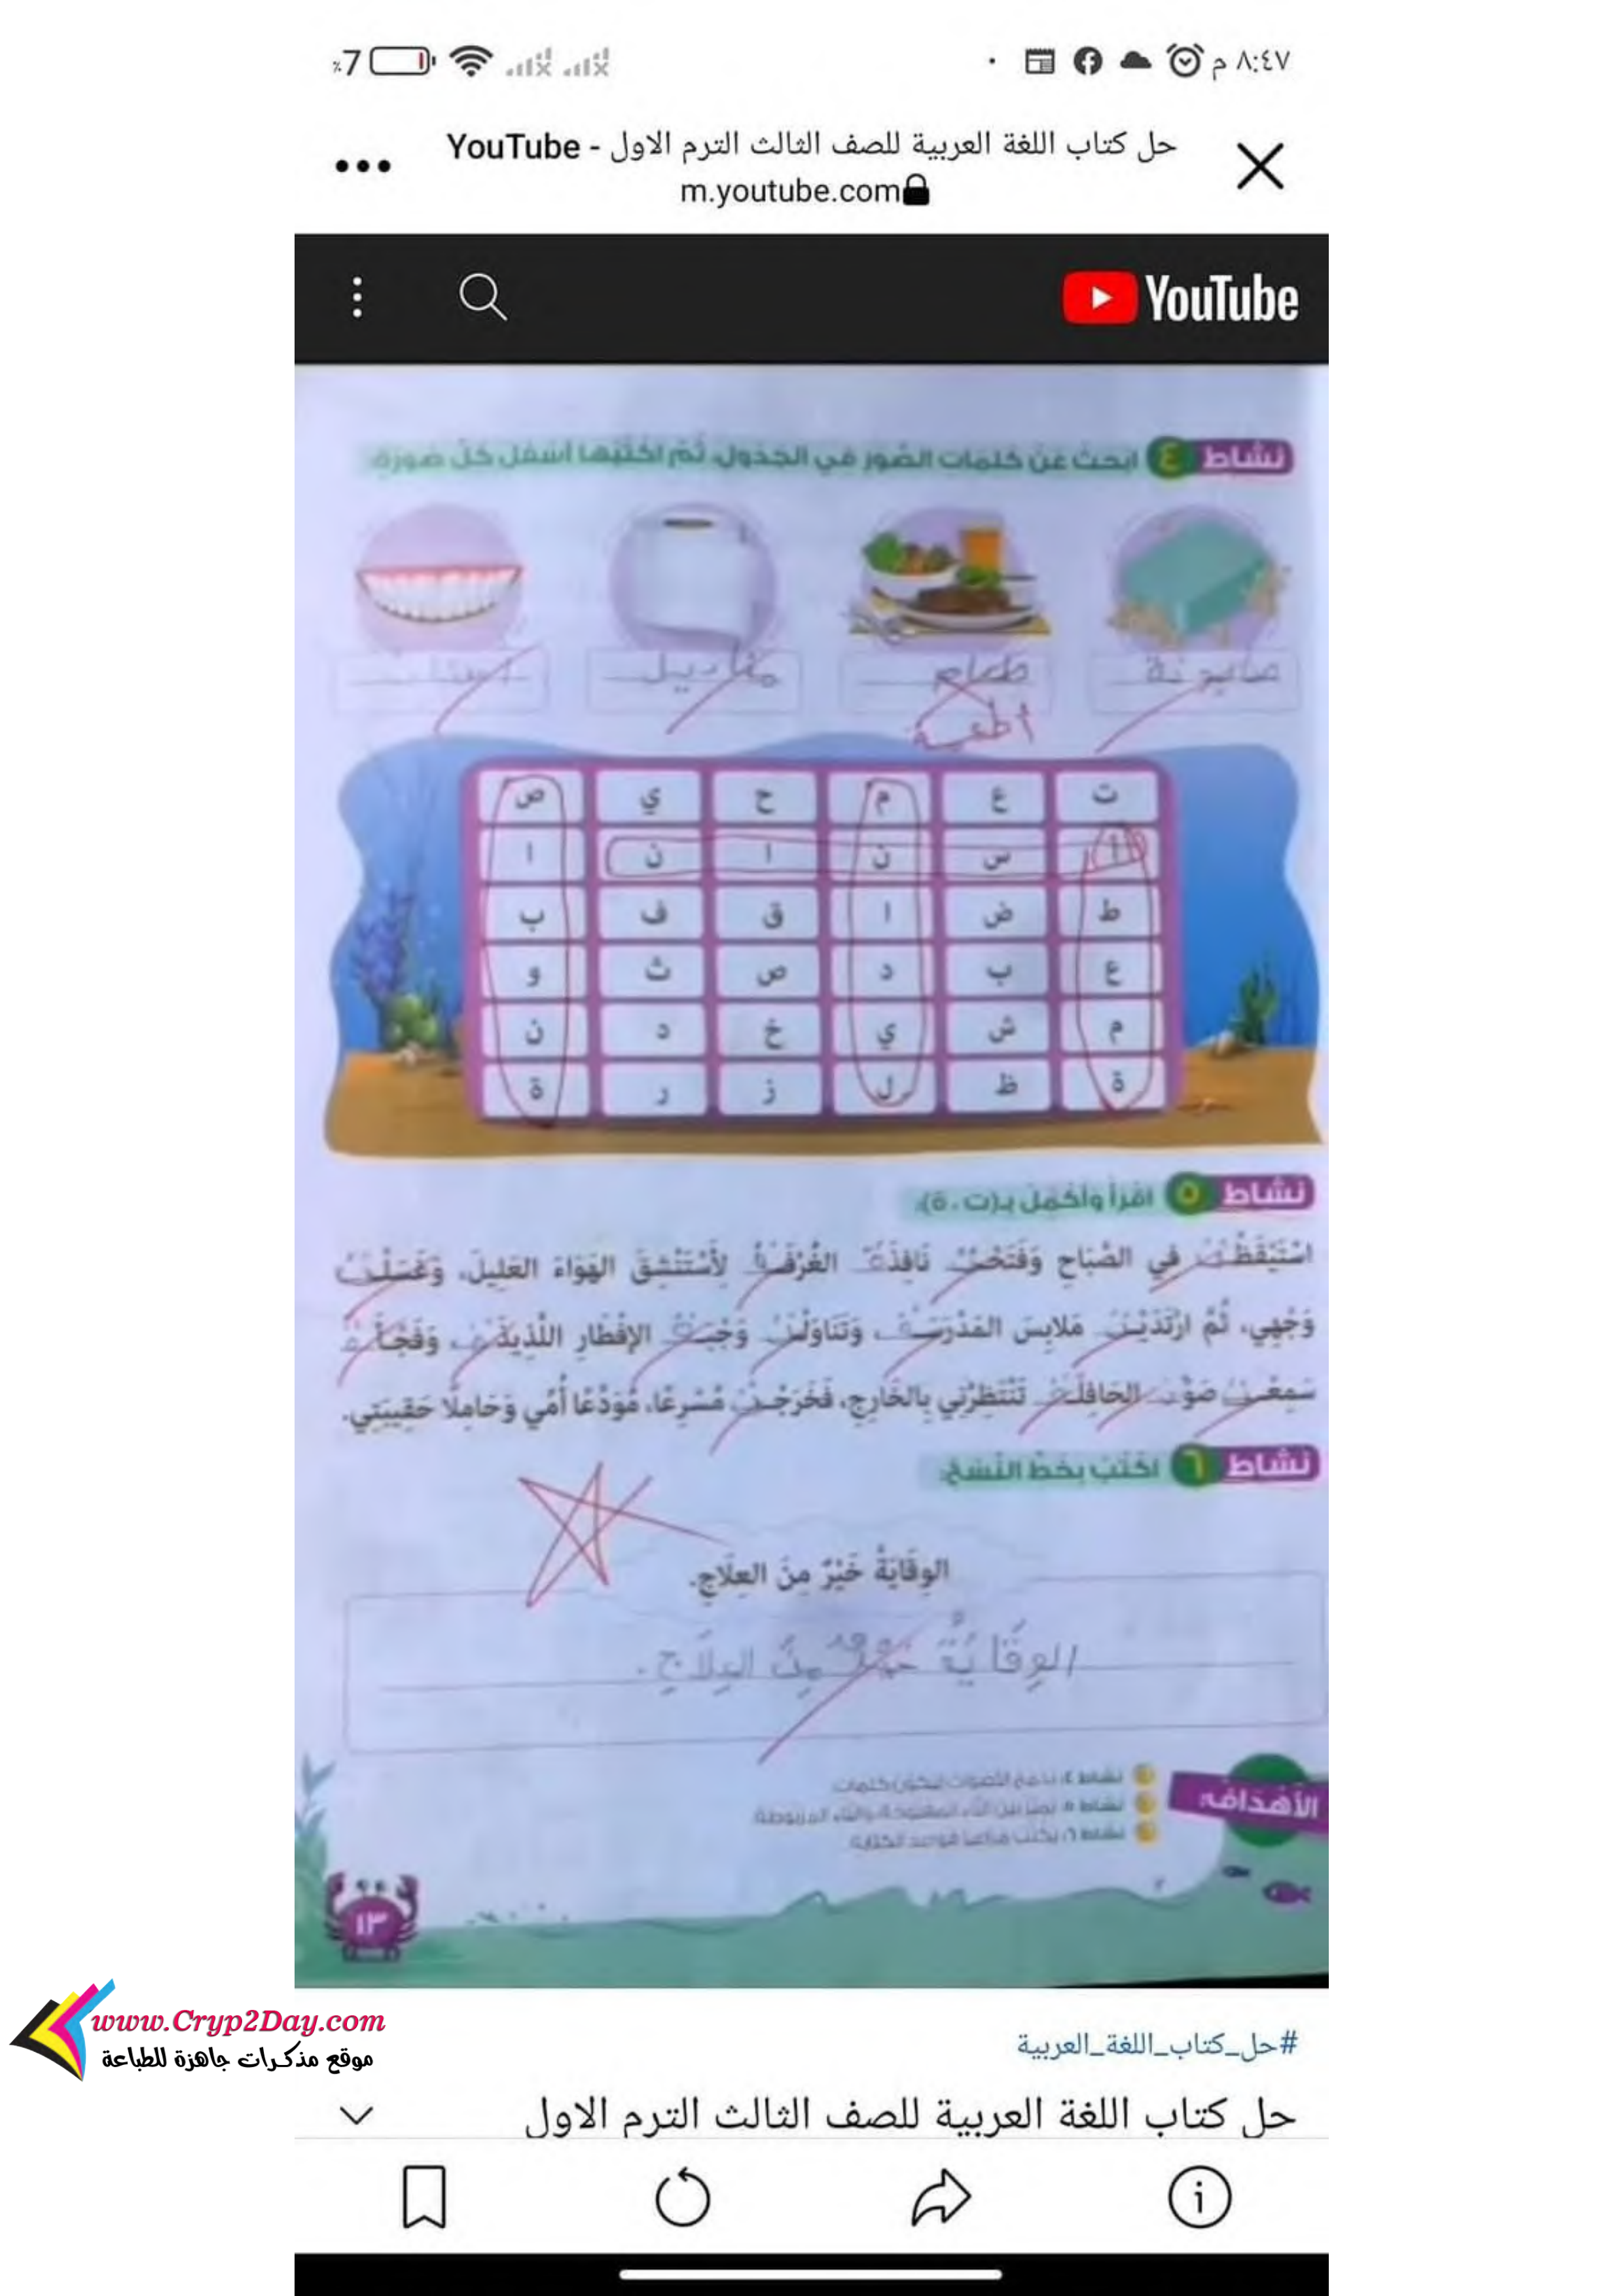 ٨:٤٧ م
٪7
حل كتاب اللغة العربية للصف الثالث الترم الاول - YouTube
m.youtube.com
YouTube
نشاط ٤ ابحث عن كلمات الصور في الجدول، ثم اكتبها أسفل كل صورة:
صابونة طعام مناديل أسنان
أطعمة
ت ع م ح ي ص
أ س ن ا ن ا
ط ض ا ق ف ب
ع ب د ص ث و
م ش ي خ د ن
ة ظ ل ز ر ة
نشاط ٥ اقرأ وأكمل بـ(ت ، ة):
اسْتَيْقَظْتُ في الصَّبَاحِ وَفَتَحْتُ نَافِذَةَ الغُرْفَةِ لِأَسْتَنْشِقَ الهَوَاءَ العَلِيلَ، وَغَسَلْتُ
وَجْهِي، ثُمَّ ارْتَدَيْتُ مَلابِسَ المَدْرَسَةِ، وَتَنَاوَلْتُ وَجْبَةَ الإِفْطَارِ اللَّذِيذَةَ، وَفَجْأَةً
سَمِعْتُ صَوْتَ الحَافِلَةِ تَنْتَظِرُنِي بِالخَارِجِ، فَخَرَجْتُ مُسْرِعًا، مُوَدِّعًا أُمِّي وَحَامِلًا حَقِيبَتِي.
نشاط ٦ اكتب بخط النسخ:
الوِقَايَةُ خَيْرٌ مِنَ العِلَاجِ.
الوِقَايَةُ خَيْرٌ مِنَ العِلَاجِ.
الأهداف:
نشاط ٤: يدمج الأصوات ليكون كلمات.
نشاط ٥: يميز بين التاء المفتوحة والتاء المربوطة.
نشاط ٦: يكتب مراعيا قواعد الكتابة.
١٣
www.Cryp2Day.com
موقع مذكرات جاهزة للطباعة
#حل_كتاب_اللغة_العربية
حل كتاب اللغة العربية للصف الثالث الترم الاول